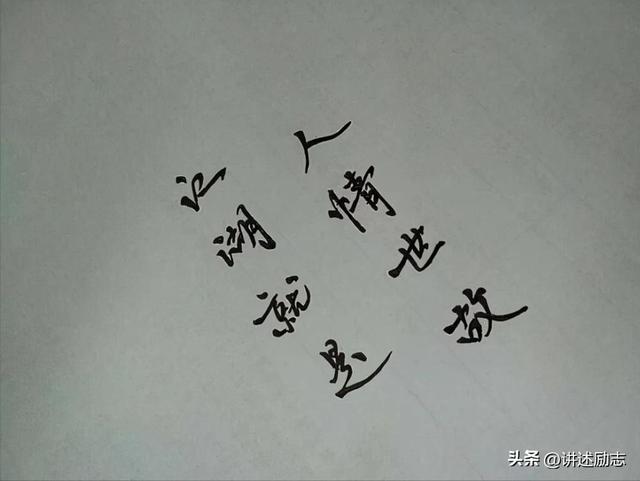 江湖就是
人情世故
头条 @讲述励志